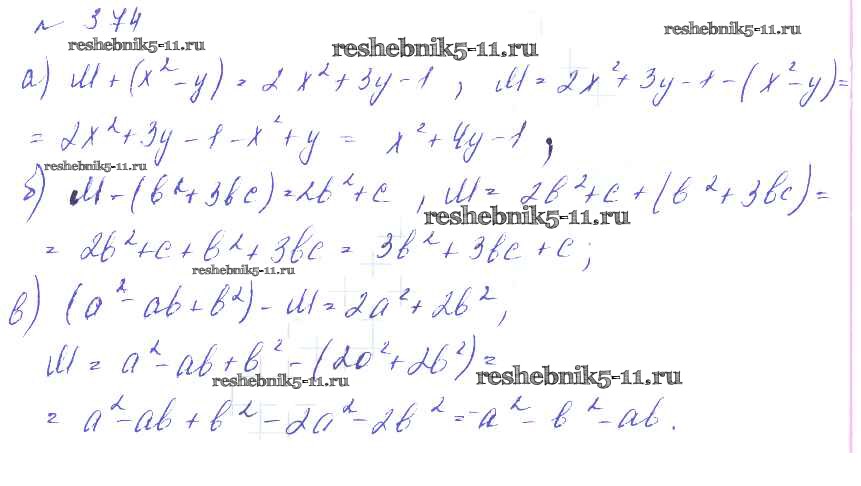 № 374
reshebnik5-11.ru reshebnik5-11.ru reshebnik5-11.ru
а) M + (x² - y) = 2x² + 3y - 1 , M = 2x² + 3y - 1 - (x² - y) =
= 2x² + 3y - 1 - x² + y = x² + 4y - 1 ;
reshebnik5-11.ru
б) M - (b² + 3bc) = 2b² + c , M = 2b² + c + (b² + 3bc) =
reshebnik5-11.ru
= 2b² + c + b² + 3bc = 3b² + 3bc + c ;
reshebnik5-11.ru
в) (a² - ab + b²) - M = 2a² + 2b² ,
M = a² - ab + b² - (2a² + 2b²) =
reshebnik5-11.ru reshebnik5-11.ru
= a² - ab + b² - 2a² - 2b² = -a² - b² - ab .